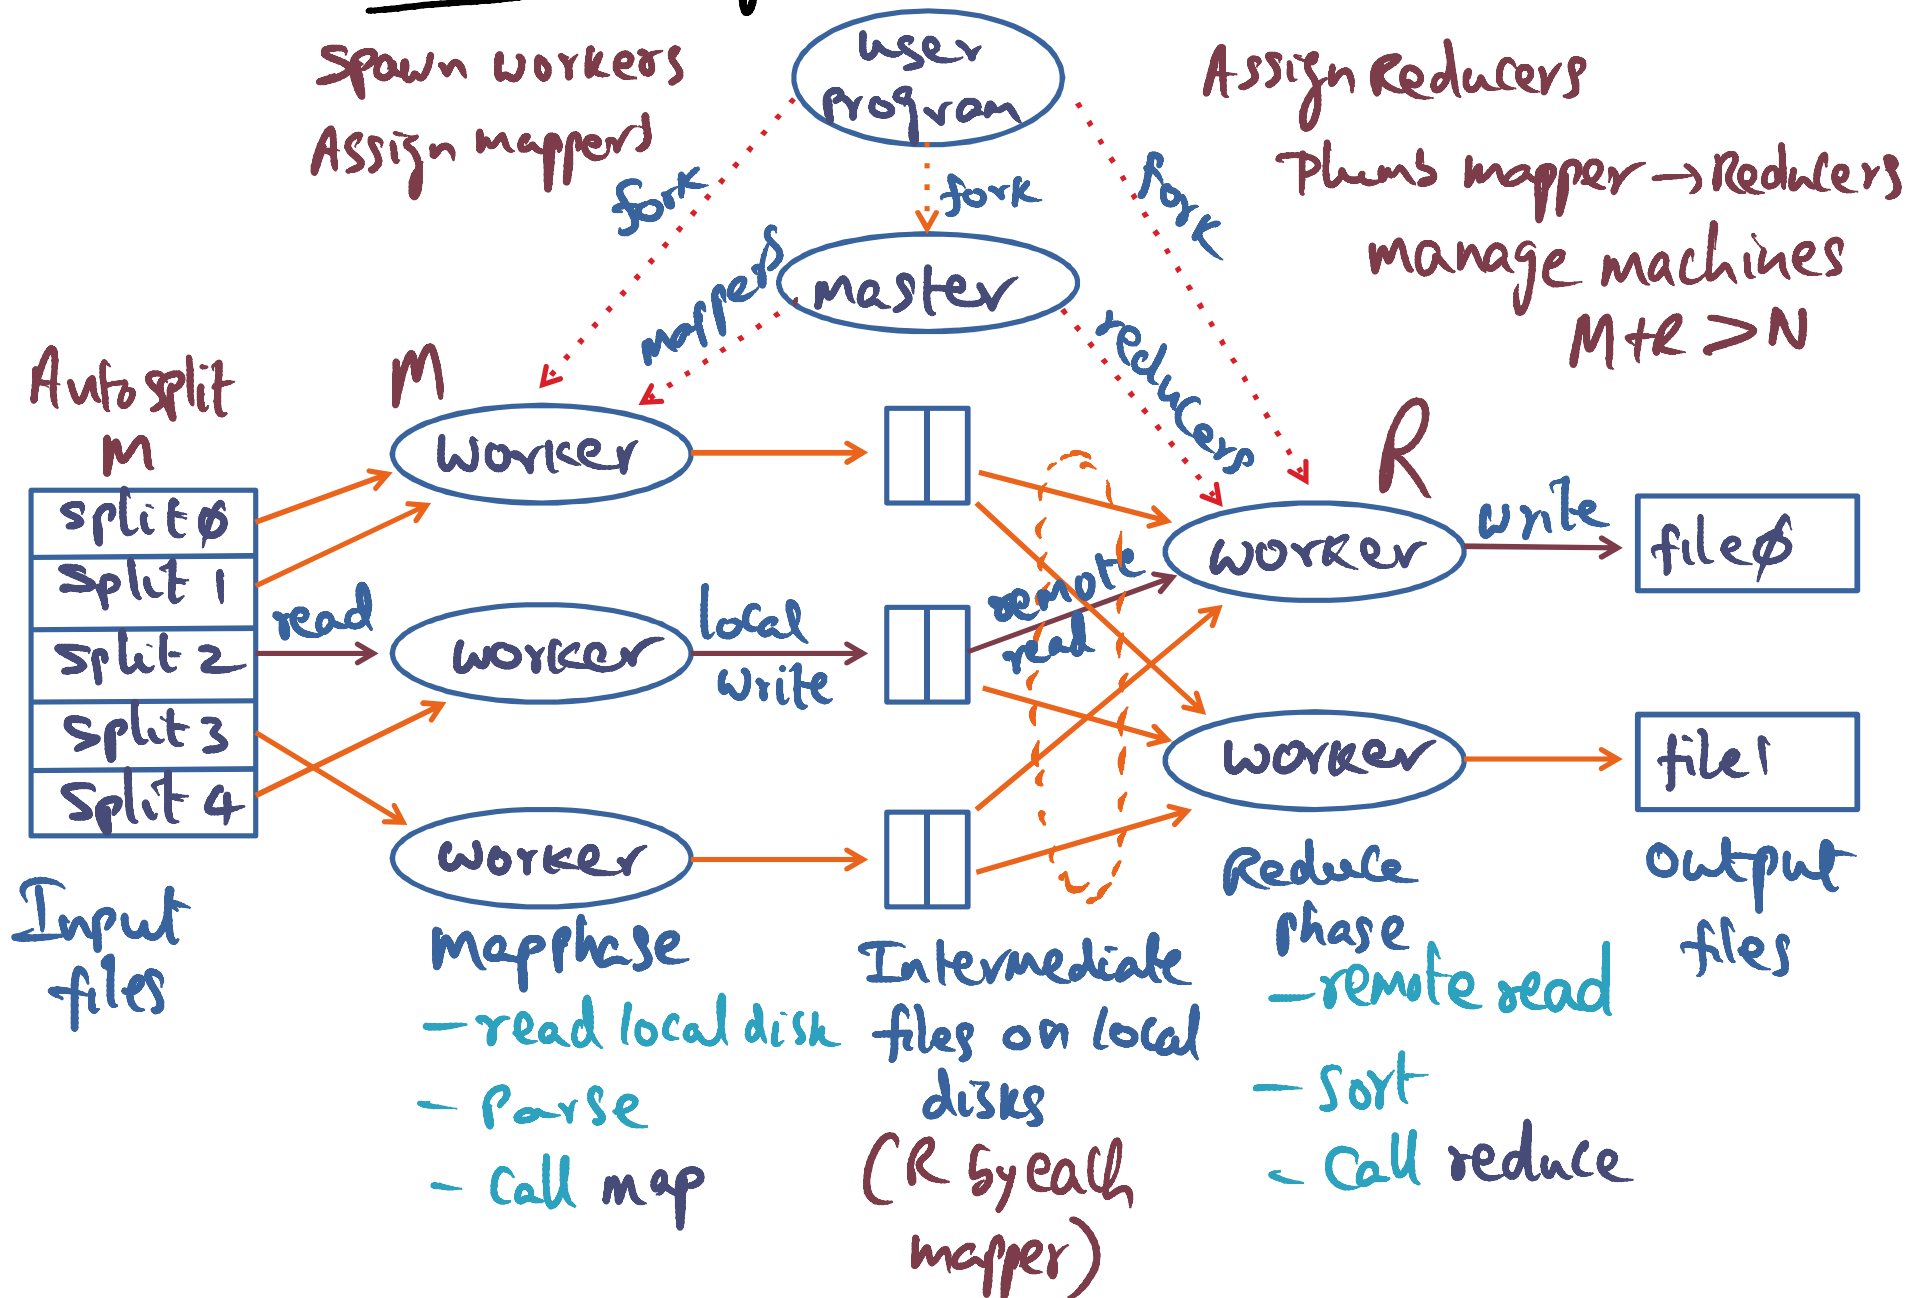 Spawn workers
Assign mappers
user
program
Assign Reducers
Plumb mapper → Reducers
manage machines
M+R > N
fork
fork
fork
master
mappers
reducers
Autosplit
M
M
R
split ø
split 1
split 2
split 3
split 4
read
worker
worker
worker
local
write
remote
read
worker
worker
write
fileø
file1
Input
files
mapphase
- read local disk
- Parse
- Call map
Intermediate
files on local
disks
(R by each
mapper)
Reduce
phase
- remote read
- Sort
- Call reduce
output
files